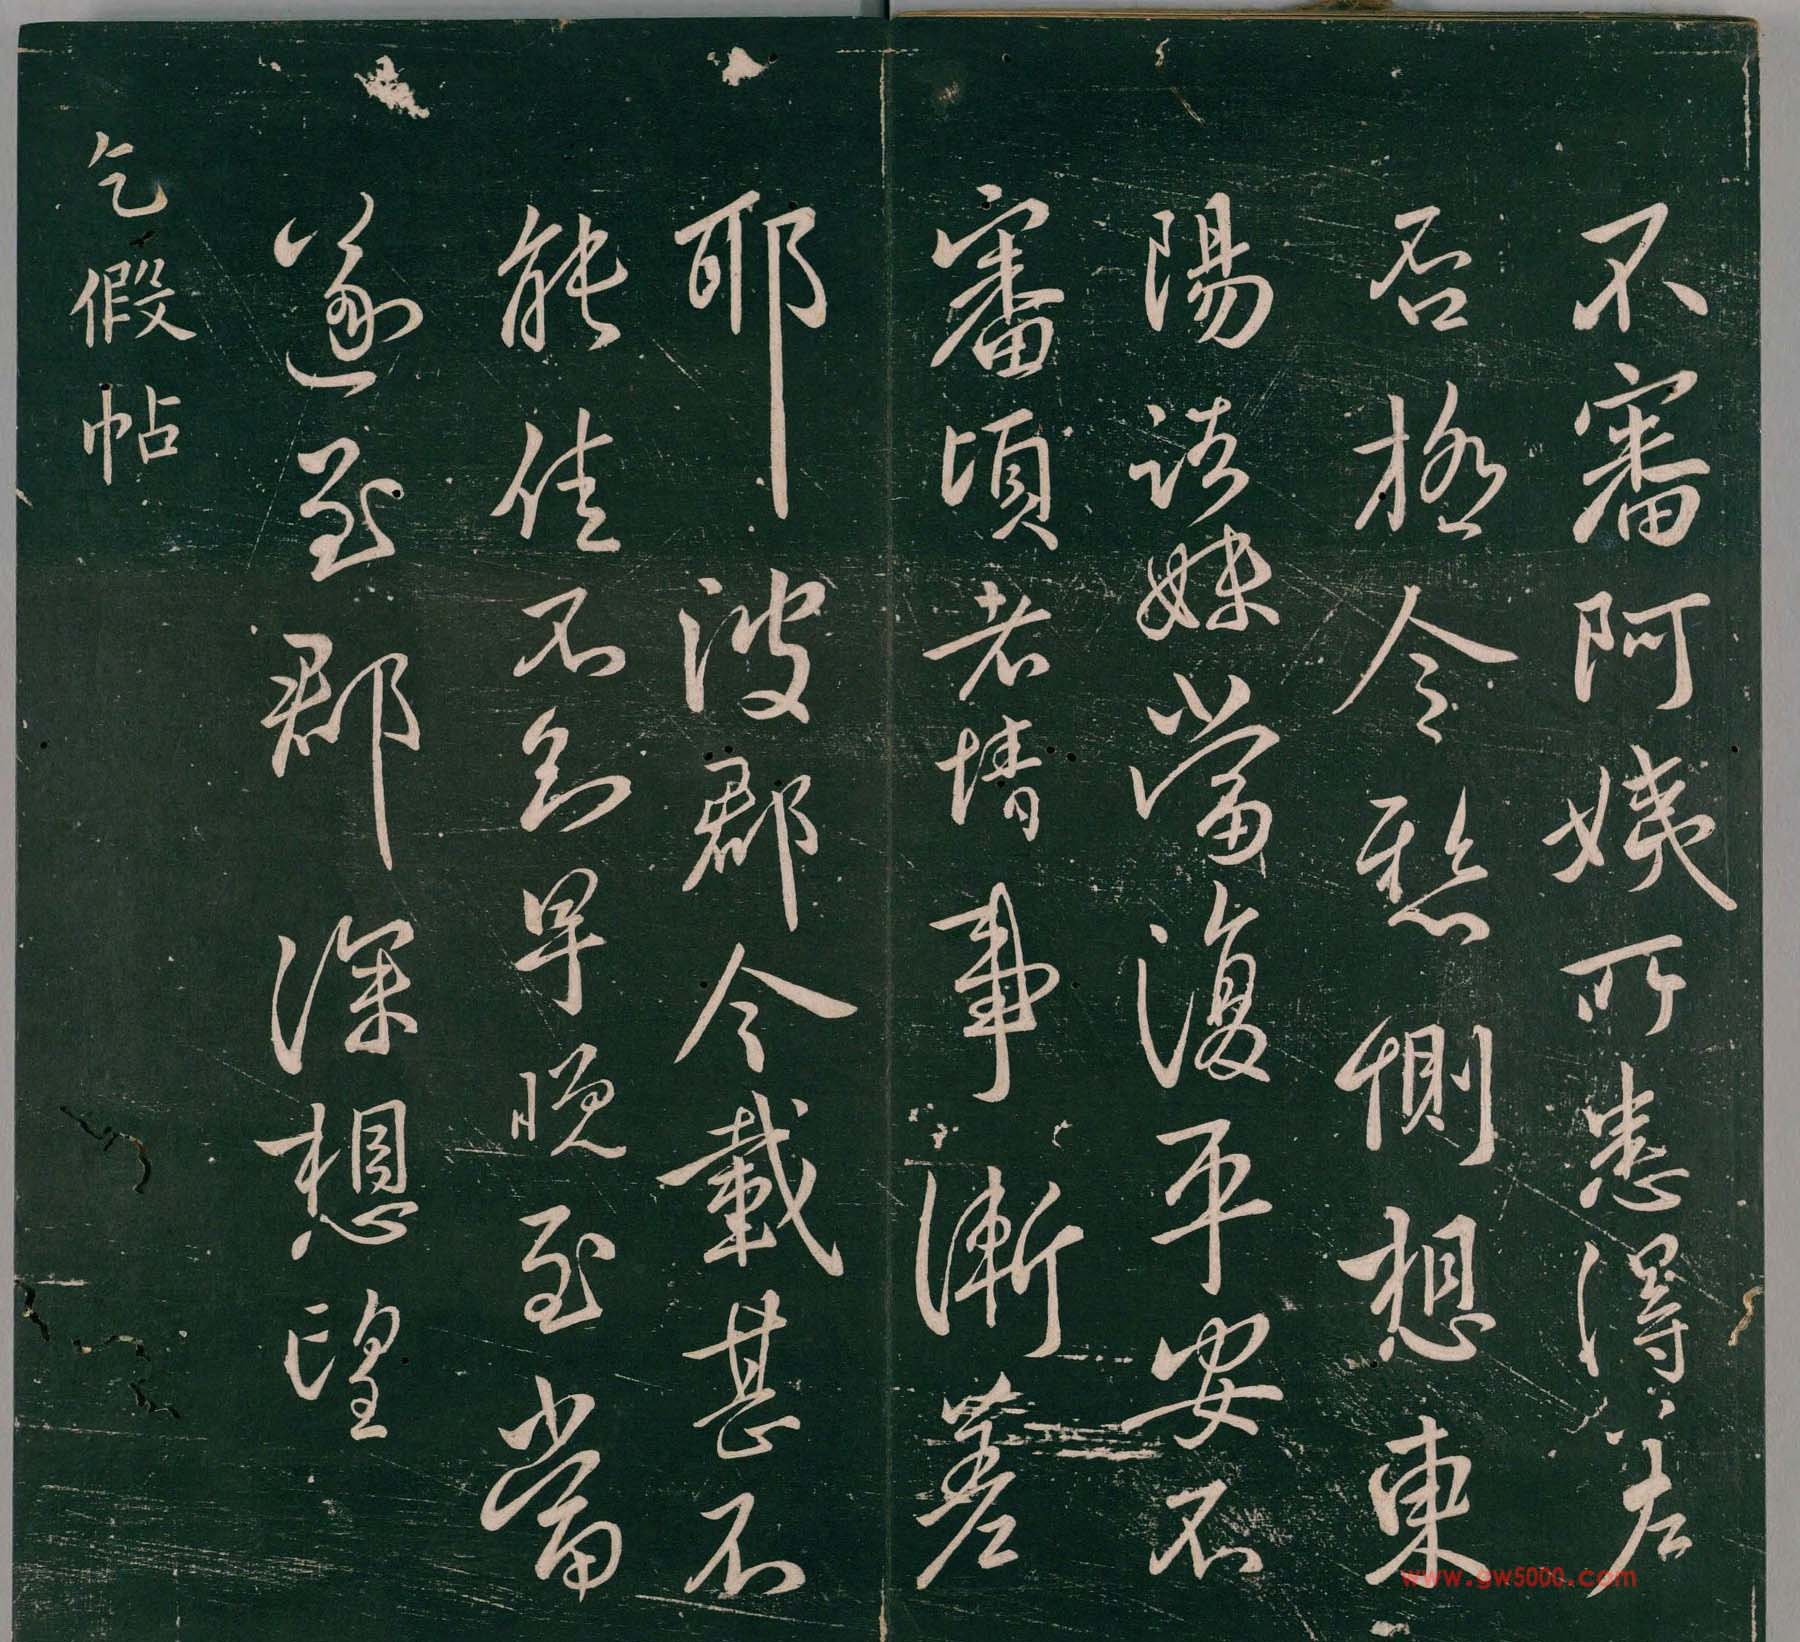 不審阿姨所患得差
否極令愁惻想東
陽諸妹當復平安不
審頃者情事漸差
耶彼郡今載甚不
能佳不知早晚至當
遂至郡深想望
乞假帖
www.gw5000.com